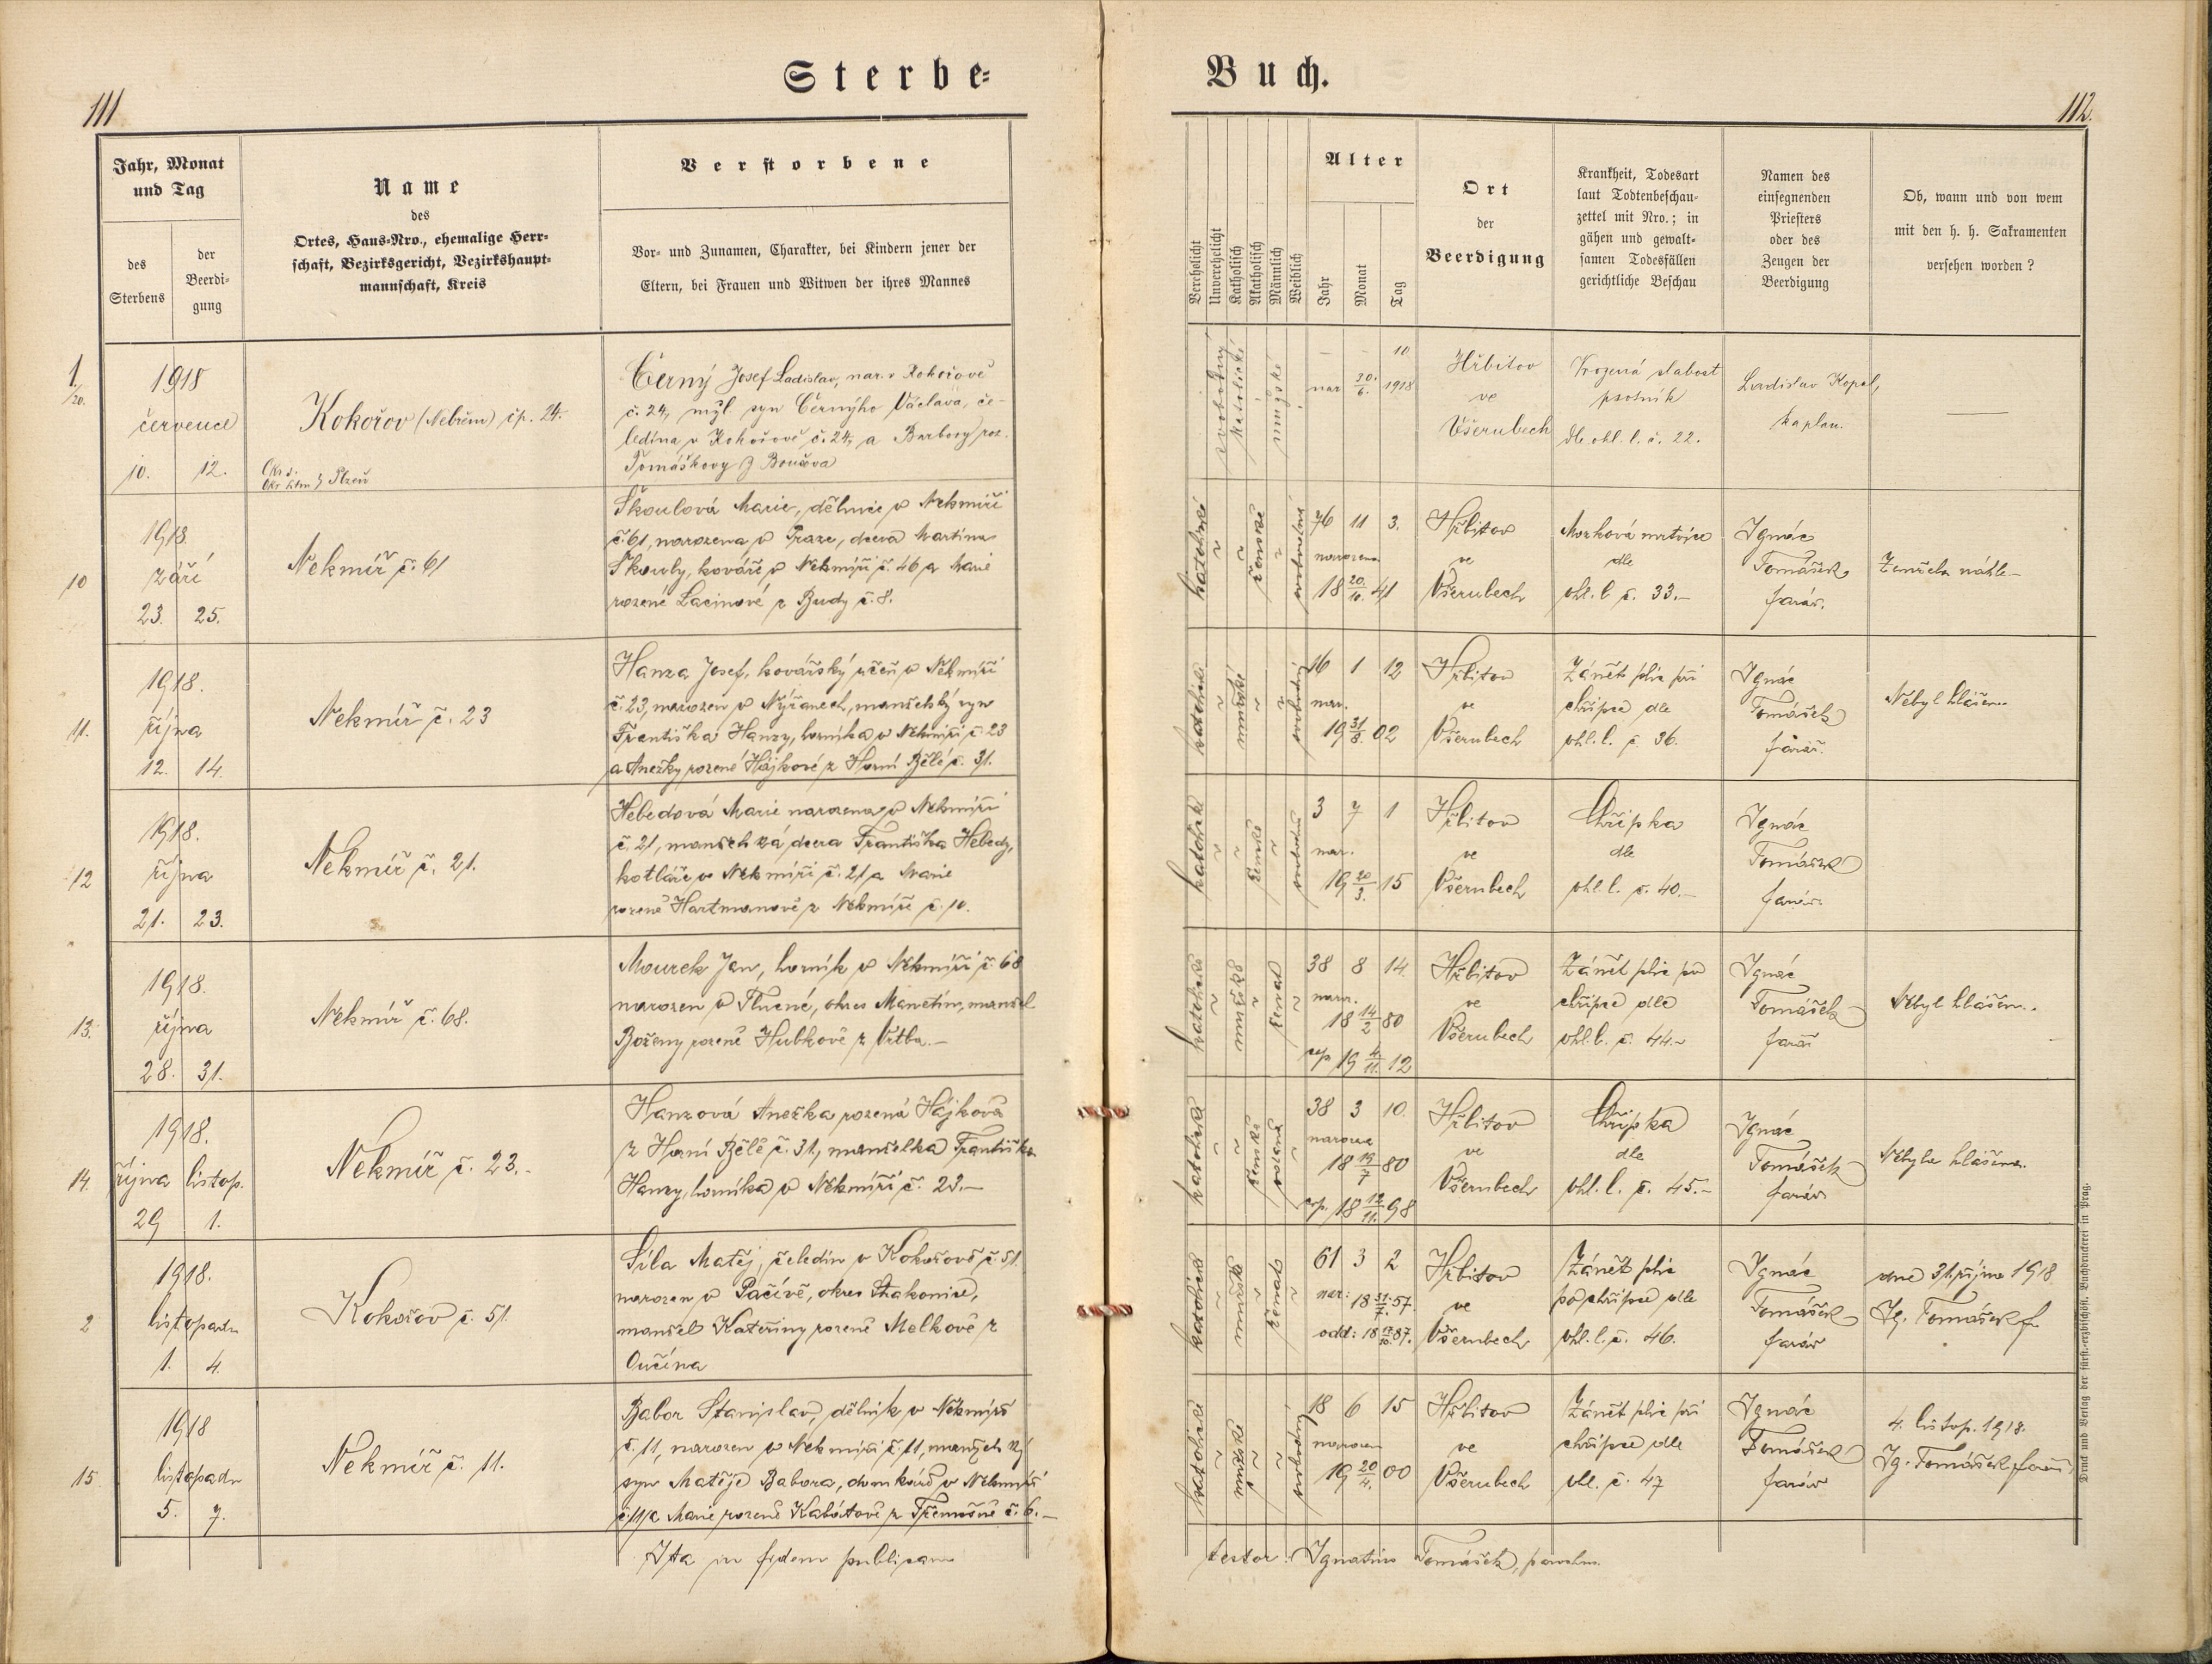 Sterbe=
Buch.
111
112.
Jahr, Monat
und Tag
des
Sterbens
der
Beerdi-
gung
Name
des
Ortes, Haus-Nro., ehemalige Herr-
schaft, Bezirksgericht, Bezirkshaupt-
mannschaft, Kreis
Verstorbene
Vor- und Zunamen, Charakter, bei Kindern jener der
Eltern, bei Frauen und Witwen der ihres Mannes
Verehelicht
Unverehelicht
Katholisch
Akatholisch
Männlich
Weiblich
Alter
Jahr
Monat
Tag
Ort
der
Beerdigung
Krankheit, Todesart
laut Todtenbeschau-
zettel mit Nro.; in
gähen und gewalt-
samen Todesfällen
gerichtliche Beschau
Namen des
einsegnenden
Priesters
oder des
Zeugen der
Beerdigung
Ob, wann und von wem
mit den h. h. Sakramenten
versehen worden?
1.
/20.
1918
července
10. 12.
Kokořov (Nebřem) čp. 24.
Plzeň
Černý Josef Ladislav, nar. v Kokořově
č. 24, mžl. syn Černýho Václava, če-
ledína v Kokořově č. 24, a Barbory roz.
Tomáškovy z Boučova
svobodný
katolické
mužské
— — 10
nar. 30./6. 1918
Hřbitov
ve
Všerubech
Vrozená slabost
psotník
dle ohl. l. č. 22.
Ladislav Kopal,
kaplan.
—
10
1918.
září
23. 25.
Nekmíř č. 61
Škoulová Marie, dělnice v Nekmíři
č. 61, narozena v Praze, dcera Martina
Škouly, kováře v Nekmíři č. 46 a Marie
rozené Lacinové z Budy č. 8.
katolické
ženské
svobodná
76 11 3.
narozena
18 20./10. 41
Hřbitov
ve
Všerubech
Mozková mrtvice
dle
ohl. l. č. 33.–
Ignác
Tomášek
farář.
Zemřela náhle–
11.
1918.
října
12. 14.
Nekmíř č. 23
Hanza Josef, kovářský učeň v Nekmíři
č. 23, narozen v Nýřanech, manželský syn
Františka Hanzy, horníka v Nekmíři č. 23
a Anežky rozené Hájkové z Horní Bělé č. 31.
katolické
mužské
svobodný
16 1 12
nar.
19 31/8. 02
Hřbitov
ve
Všerubech
Zánět plic při
chřipce dle
ohl. l. č. 36.
Ignác
Tomášek
farář.
Nebyl hlášen.
12
1918.
října
21. 23.
Nekmíř č. 21.
Hebedová Marie narozena v Nekmíři
č. 21, manželská dcera Františka Hebedy,
kotláře v Nekmíři č. 21 a Marie
rozené Hartmanové z Nekmíře č. 10.
katolické
ženské
svobodná
3 7 1
nar.
19 20/3. 15
Hřbitov
ve
Všerubech
Chřipka
dle
ohl. l. č. 40.–
Ignác
Tomášek
farář.
13.
1918.
října
28. 31.
Nekmíř č. 68.
Mourek Jan, horník v Nekmíři č. 68
narozen v Plné, okres Manetín, manžel
Boženy rozené Hubkové z Vrtba.–
katolické
mužské
ženat
38 8 14.
naro.
18 14/2 80
19 4./11. 12
Hřbitov
ve
Všerubech
Zánět plic po
chřipce dle
ohl. l. č. 44.–
Ignác
Tomášek
farář
Nebyl hlášen..
14.
1918.
října listop.
29 1.
Nekmíř č. 23.–
Hanzová Anežka rozená Hájková
z Horní Bělé č. 31, manželka Františka
Hanzy, horníka v Nekmíři č. 23.–
katolické
ženské
38 3 10.
narozena
18 19/7 80
18 12/11. 98
Hřbitov
ve
Všerubech
Chřipka
dle
ohl. l. č. 45.–
Ignác
Tomášek
farář
Nebyla hlášena.
2
1918.
listopadu
1. 4.
Kokořov č. 51.
Síla Matěj, čeledín v Kokořově č. 51.
narozen v Pačívě, okres Strakonice,
manžel Kateřiny rozené Melkové z
katolické
mužské
ženatý
61 3 2
nar: 18 31./7. 57.
odd: 18 87.
Hřbitov
ve
Všerubech
Zánět plic
po chřipce dle
ohl. l. č. 46.
Ignác
Tomášek
farář
dne 31. října 1918
Ig. Tomášek f.
15.
1918
listopadu
5. 7.
Nekmíř č. 11.
Babor Stanislav, dělník v Nekmíři
č. 11, narozen v Nekmíři č. 11, manželský
syn Matěje Babora, domkáře v Nekmíři
č. 11 a Marie rozené Kabátové z Třemošné č. 6.–
katolické
mužské
svobodný
18 6 15
narozen
19 20/4. 00
Hřbitov
ve
Všerubech
Zánět plic při
chřipce dle
ohl. č. 47
Ignác
Tomášek
farář
4. listop. 1918.
Ig. Tomášek farář
Ita in fidem publicam
testor: Ignatius Tomášek, parochus.
Druck und Verlag der fürst-erzbischöfl. Buchdruckerei in Prag.